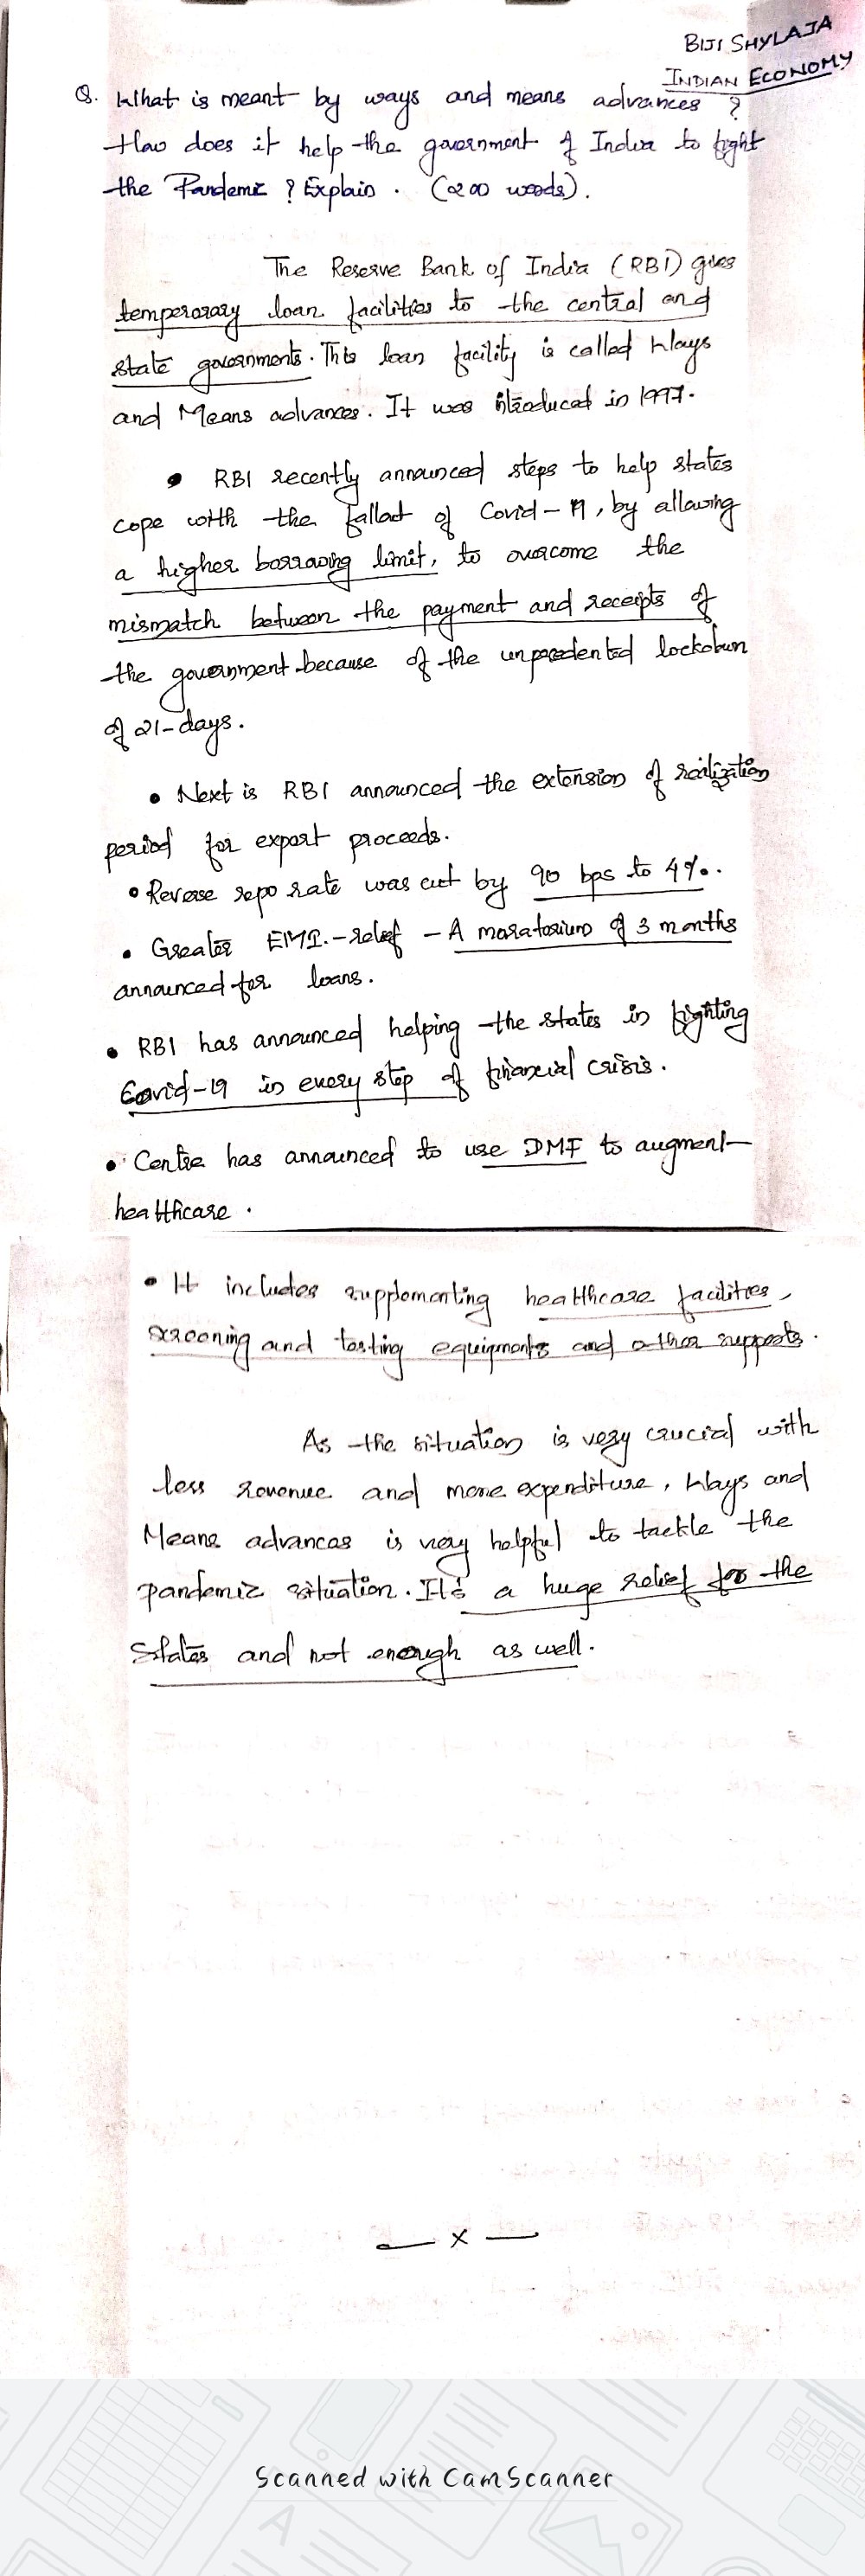 BIJI SHYLAJA
INDIAN ECONOMY
Q. What is meant by ways and means advances ?
How does it help the government of India to fight
the Pandemic ? Explain . (200 words).
The Reserve Bank of India (RBI) gives
temperorary loan facilities to the central and
state governments. This loan facility is called Ways
and Means advances. It was introduced in 1997.
• RBI recently announced steps to help states
cope with the fallout of Covid-19, by allowing
a higher borrowing limit, to overcome the
mismatch between the payment and receipts of
the government because of the unprecedented lockdown
of 21-days.
• Next is RBI announced the extension of realization
period for export proceeds.
• Reverse repo rate was cut by 90 bps to 4%.
• Greater EMI.-relief - A moratorium of 3 months
announced for loans.
• RBI has announced helping the states in fighting
Covid-19 in every step of financial crisis.
• Centre has announced to use DMF to augment
healthcare .
• It includes supplementing healthcare facilities,
screening and testing equipments and other supports.
As the situation is very crucial with
less revenue and more expenditure, Ways and
Means advances is very helpful to tackle the
pandemic situation. It's a huge relief for the
States and not enough as well.
— x —
Scanned with CamScanner